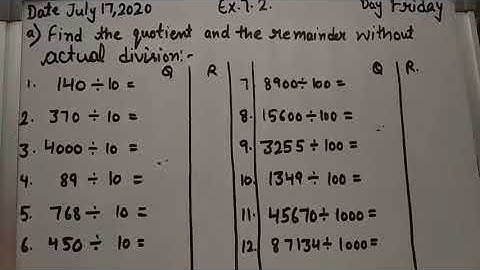 Date July 17,2020 Ex.7.2. Day Friday
a) Find the quotient and the remainder without
actual division:-
Q R
1. 140 ÷ 10 =
2. 370 ÷ 10 =
3. 4000 ÷ 10 =
4. 89 ÷ 10 =
5. 768 ÷ 10 =
6. 450 ÷ 10 =
Q R.
7. 8900 ÷ 100 =
8. 15600 ÷ 100 =
9. 3255 ÷ 100 =
10. 1349 ÷ 100 =
11. 45670 ÷ 1000 =
12. 87134 ÷ 1000 =